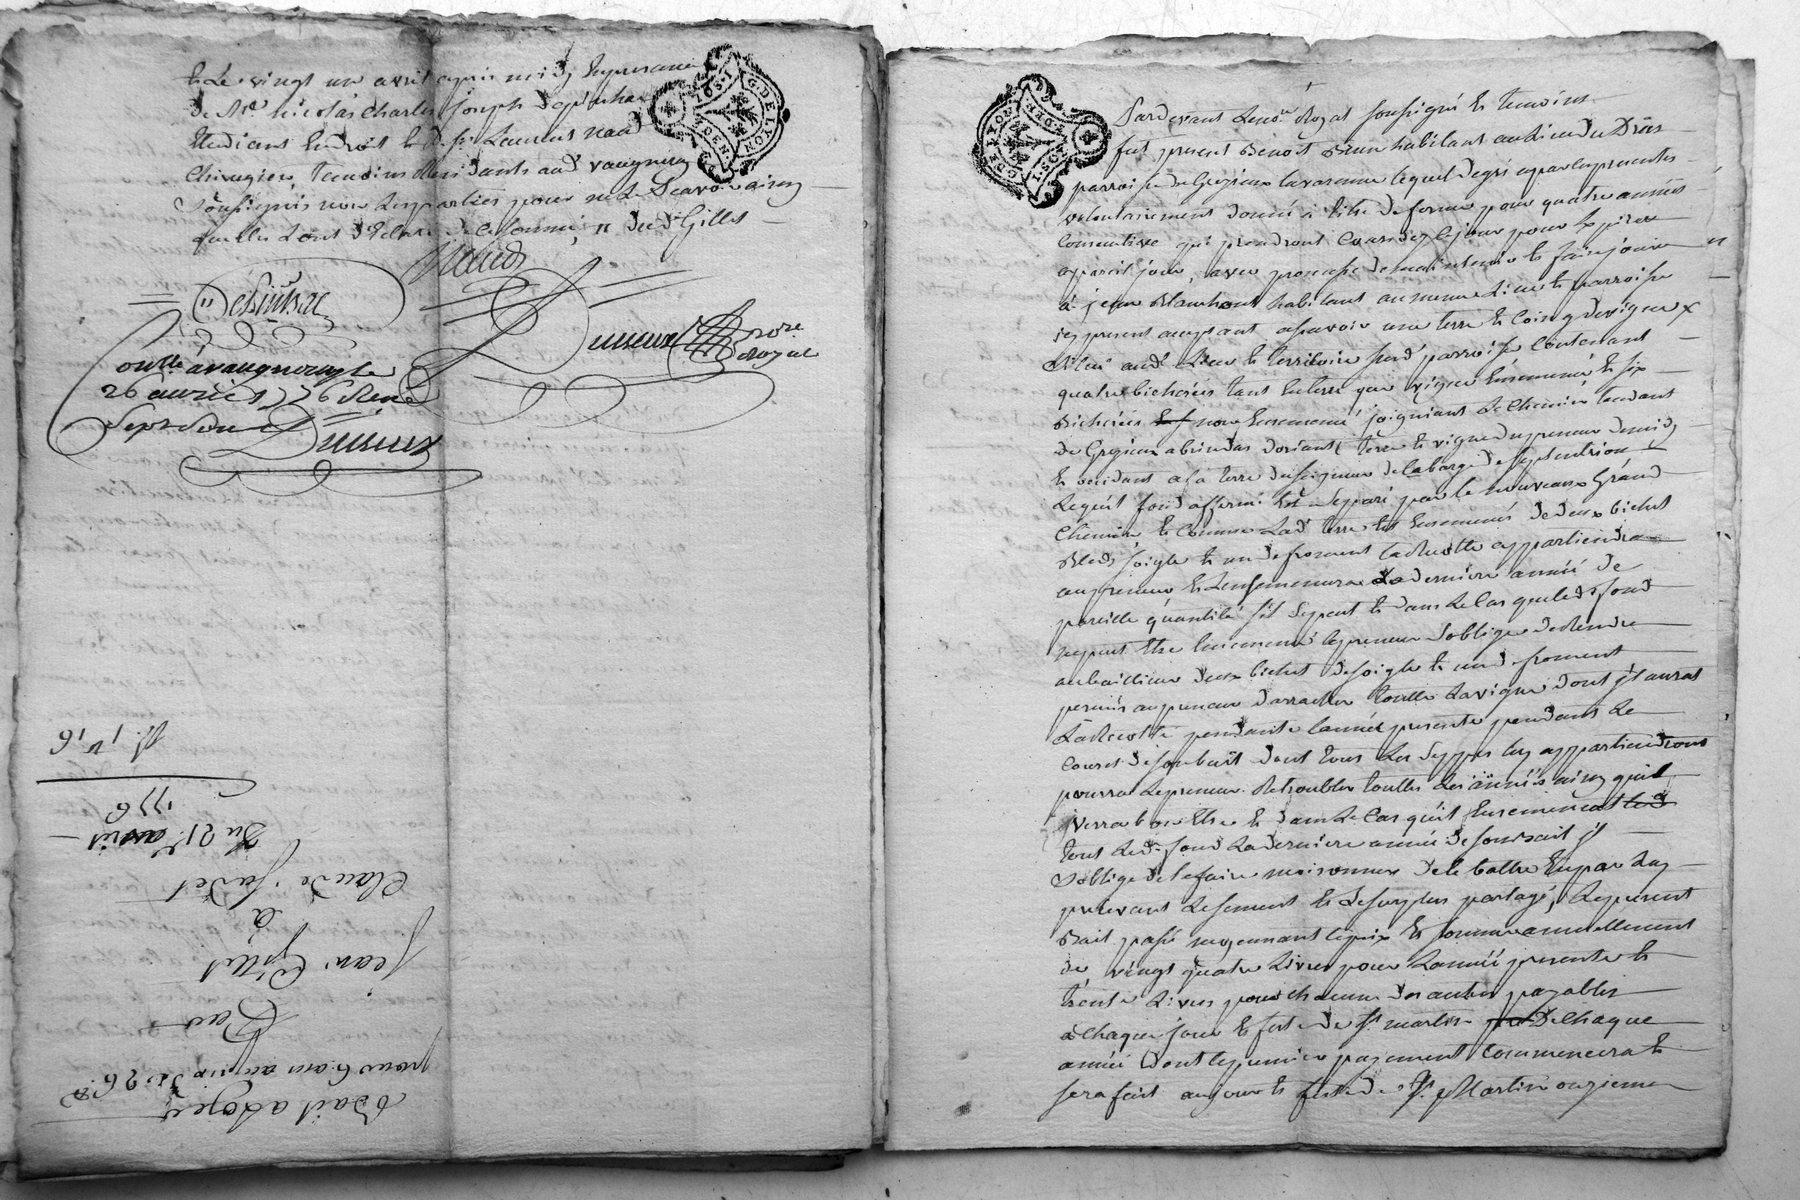 et Le vingt un avril après midy En presence
de Me nicolas Charles Joseph
Etudiant En droit et de Sr Laurent naud
Chirugien, temoins Residants aud vaugneray
Soussignés non Les parties pour ne Le Scavoir ainsy
quelles Lont declaré de ce Sommé, " ded Gillet
Naud
Dusseux no.re Royal
Con.llé à vaugneray le
26 avril 1776 Reçu
Sept sols
Dusseux
Bail a Loyer
pour 6 ans au prix de 26 #
Par
Jean Gillet
à
Claude
Du 21 avril
1776
G. DE LYON
Pardevant Le no.re Royal soussigné et temoins
fut present Benoit Brun habitant au Lieu du
parroisse de Grezieu Lavarenne Lequel de gré a par Ces presentes
volontairement donné à titre de ferme pour quatre années
Consecutives qui prendront Cours dez Ce jour pour Expirer
a pareil jour, avec promesse de maintenir et faire jouir
à jean Blanchard habitant au meme Lieu et parroisse
icy present acceptant asçavoir une terre et Coing de vigne
Situé aud Lieu et territoire susd parroisse Contenant
quatre bicherées tant En terre que vigne Ensemencé et six
Bicherées non Ensemencé joignant Le Chemin tendant
de Grezieu a brindas dorient, terre et vigne du preneur de midy
et occident a la terre du seigneur de Labarge de septentrion
Lequel fond affermé Est Separé par le nouveau Grand
Chemin et Comme Lad terre Est Ensemencé de deux bichet
Bled Soigle et un de froment La Recolte appartiendra
au preneur Et Ensemencera La derniere année de
pareille quantité s'il Se peut et dans Le Cas que led fond
ne peut Etre Ensemencé le preneur Soblige de Rendre
au bailleur deux bichet de Soigle et un de froment
permis au preneur darracher toutte La vigne dont jl aurat
La Recolte pendante Lannée presente pendant Le
Cours de son bail dont tous Les Seppes luy appartiendront
pourra Le preneur Retroubler touttes Les années ainsy quil
verra bon Etre et dans Le Cas qu'il Ensemencat
tout Led fond La derniere année de son bail jl
Soblige de le faire moissonner de le battre En par Luy
prelevant Le Sement Et Le Surplus partagé, Le present
Bail passé moyennant Le prix Et Somme annuellement
de vingt quatre Livres pour Lannée presente et
trente Livres pour Chacune des autres payables
à Chaque jour Et feste de St martin de Chaque
année dont Le premier payement Commencera et
sera fait au jour et feste de St Martin onzieme